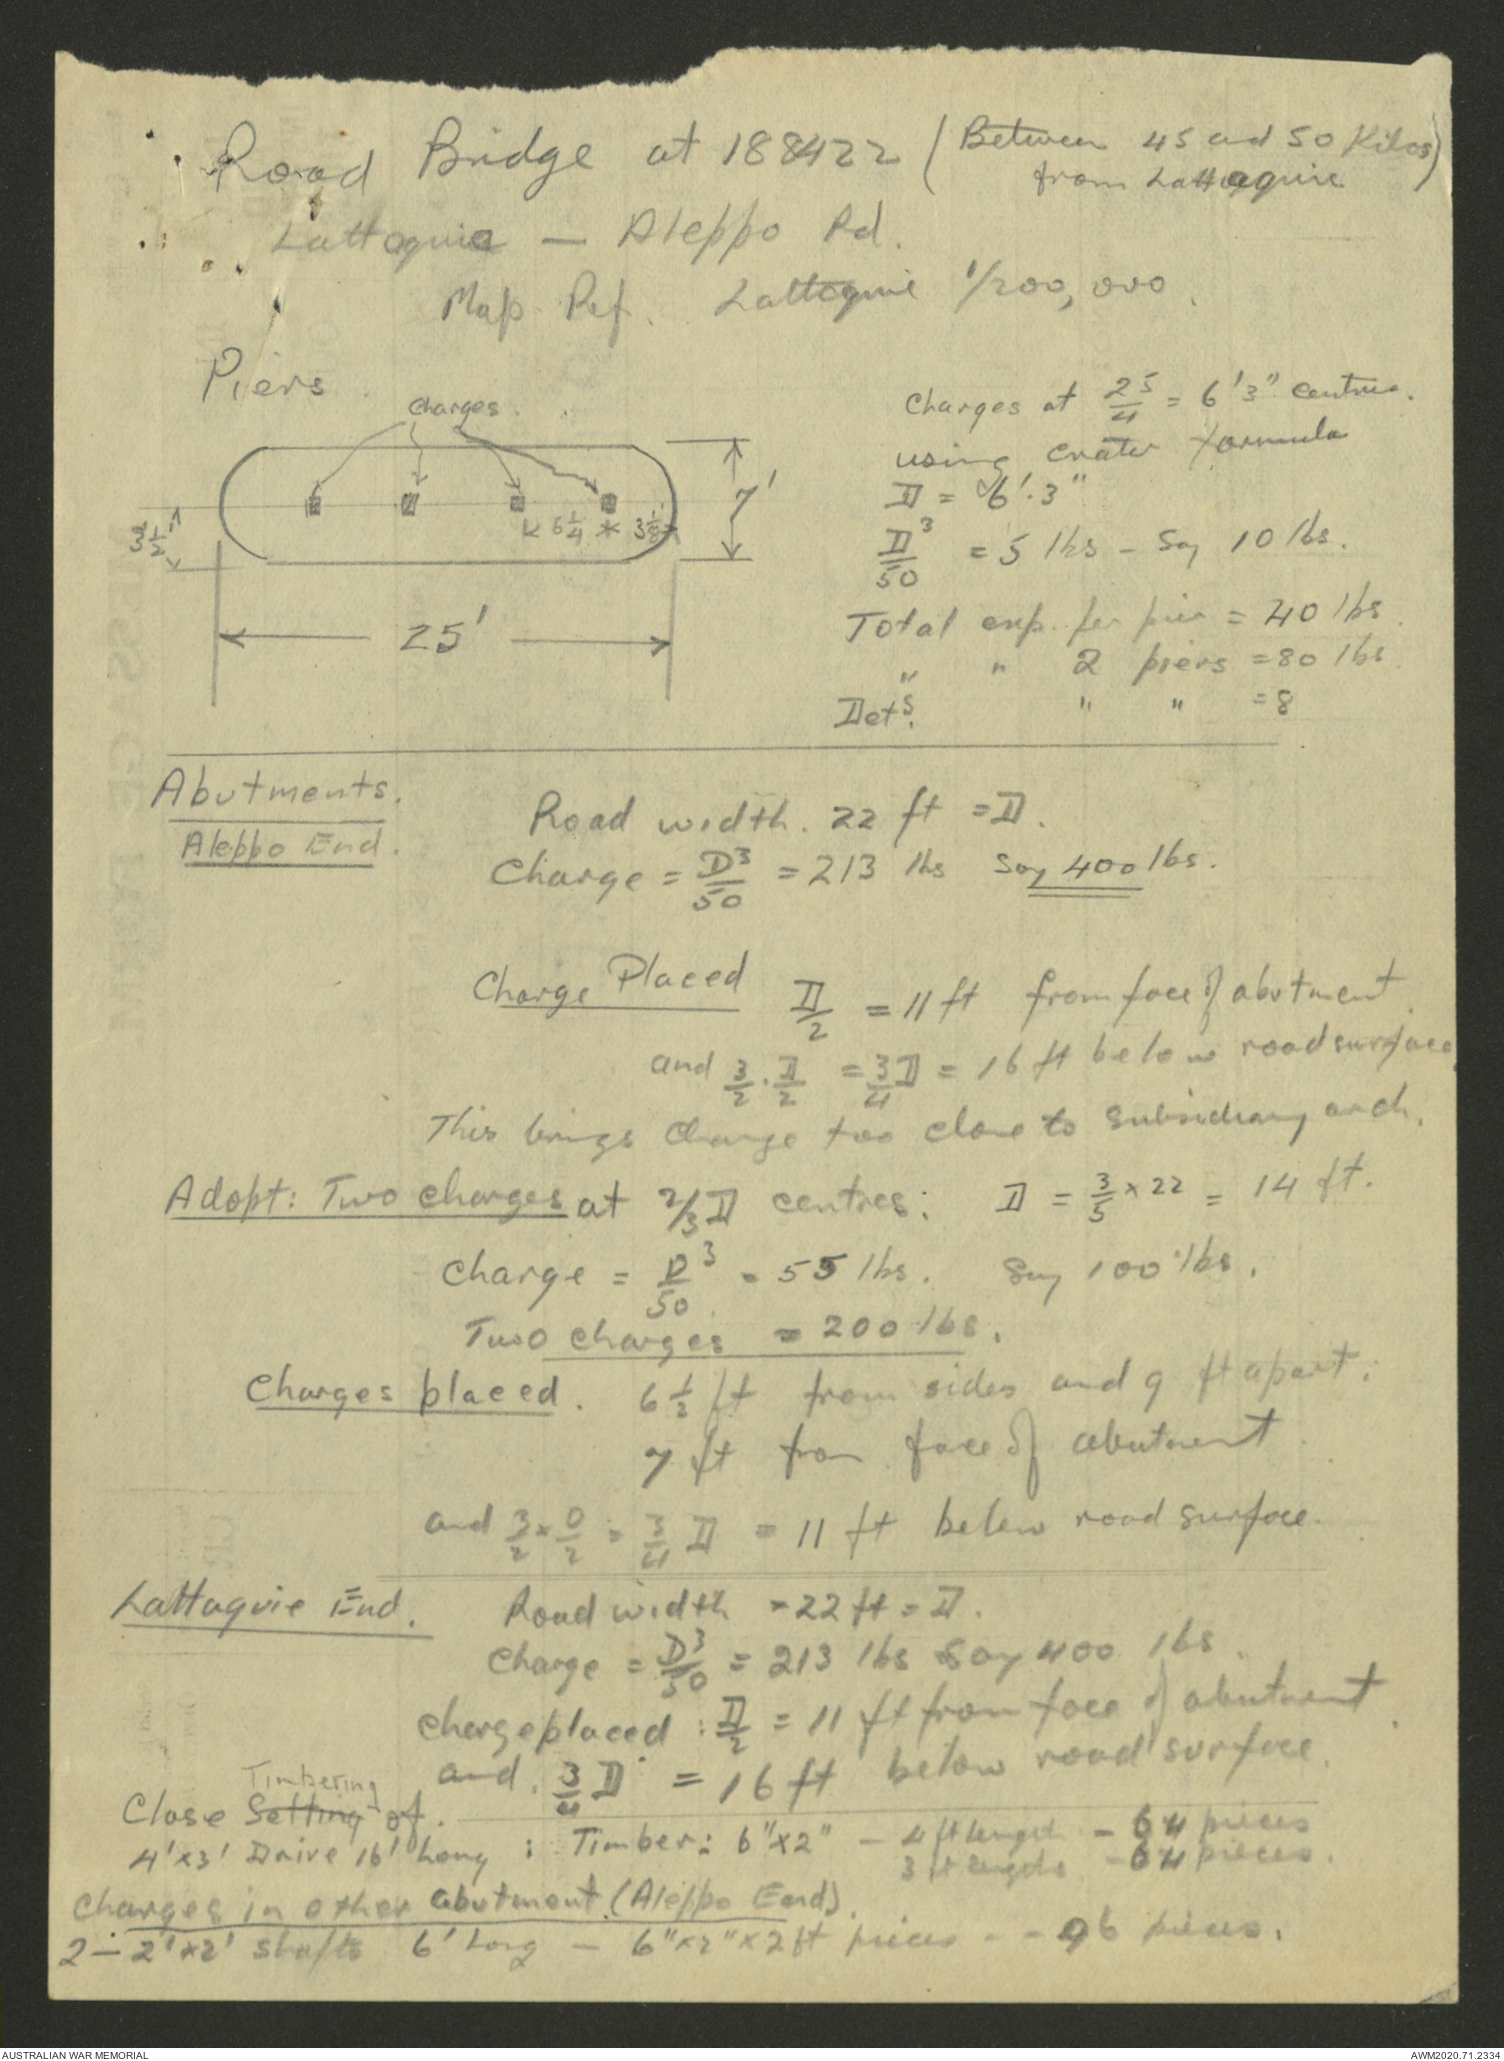 Road Bridge at 188422 (Between 45 and 50 Kilos
from Lattaquie)
Lattaquie — Aleppo Rd.
Map Ref. Lattaquie 1/200,000.
Piers
Charges
7'
3 1/2'
6 1/4
3 1/8
25'
Charges at 25/4 = 6'3" centres.
using crater formula
D = 6'.3"
D³/50 = 5 lbs – Say 10 lbs.
Total exp. per pier = 40 lbs.
" " 2 piers = 80 lbs.
Dets. " " = 8
Abutments.
Aleppo End.
Road width. 22 ft = D.
Charge = D³/50 = 213 lbs Say 400 lbs.
Charge Placed D/2 = 11 ft from face of abutment
and 3/2 . D/2 = 3/4 D = 16 ft below road surface
This brings charge too close to subsidiary arch.
Adopt: Two charges at 2/3 D centres: D = 3/5 x 22 = 14 ft.
Charge = D³/50 = 55 lbs. Say 100 lbs.
Two charges = 200 lbs.
Charges placed. 6 1/2 ft from sides and 9 ft apart:
7 ft from face of abutment
and 3/2 x D/2 = 3/4 D = 11 ft below road surface.
Lattaquie End. Road width = 22 ft = D.
Charge = D³/50 = 213 lbs say 400 lbs.
Charge placed: D/2 = 11 ft from face of abutment
and. 3/4 D = 16 ft below road surface.
Timbering
Close Setting of.
4'x3' Drive 16' Long : Timber: 6"x2" – 4 ft length – 64 pieces
3 ft lengths – 64 pieces.
Charges in other abutment (Aleppo End).
2 – 2'x2' shafts 6' Long – 6"x2"x2 ft pieces - - 96 pieces.
AUSTRALIAN WAR MEMORIAL
AWM2020.71.2334